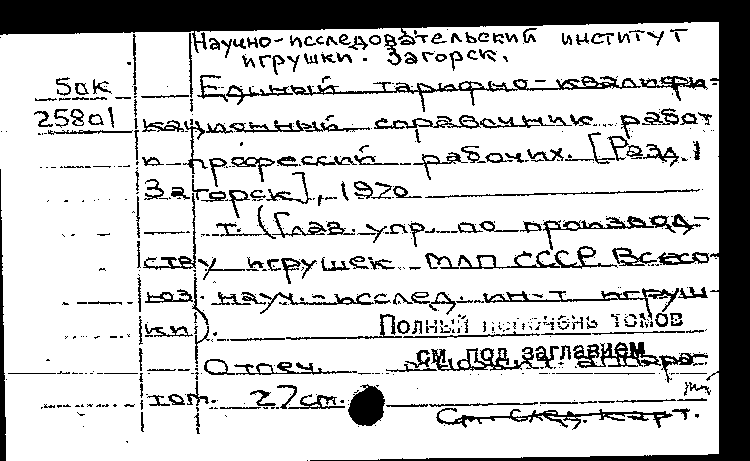 Научно-исследовательский институт
игрушки. Загорск.
5ак Единый тарифно-квалифи-
25801 кационный справочник работ
и профессий рабочих. [Разд. 1
Загорск], 1970
т. (Глав. упр. по производ-
ству игрушек МЛП СССР. Всесо-
юз. науч.-исслед. ин-т игруш-
ки).
Полный перечень томов
см. под заглавием
Отпеч.
том. 27 см.
См. след. карт.